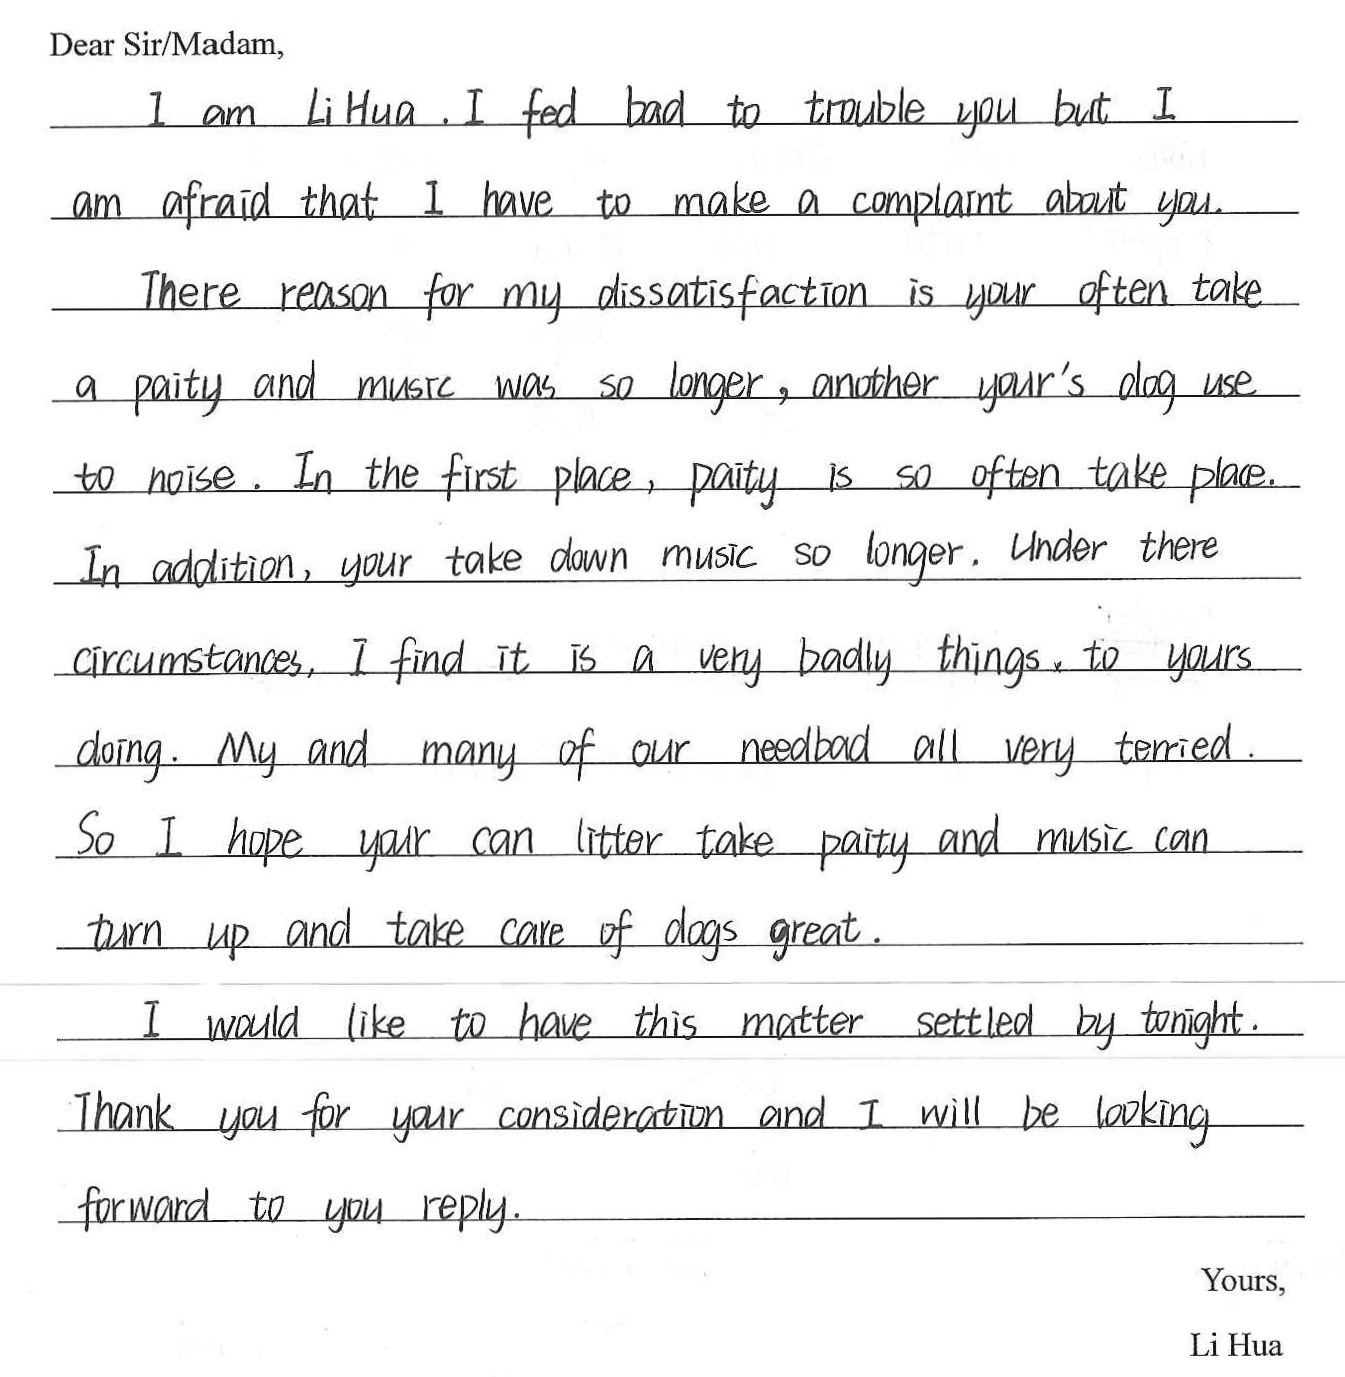 Dear Sir/Madam,
I am Li Hua. I fed bad to trouble you but I
am afraid that I have to make a complaint about you.
There reason for my dissatisfaction is your often take
a paity and music was so longer, another your's dog use
to noise. In the first place, paity is so often take place.
In addition, your take down music so longer. Under there
circumstances, I find it is a very badly things. to yours
doing. My and many of our needbad all very terried.
So I hope your can litter take paity and music can
turn up and take care of dogs great.
I would like to have this matter settled by tonight.
Thank you for your consideration and I will be looking
forward to you reply.
Yours,
Li Hua